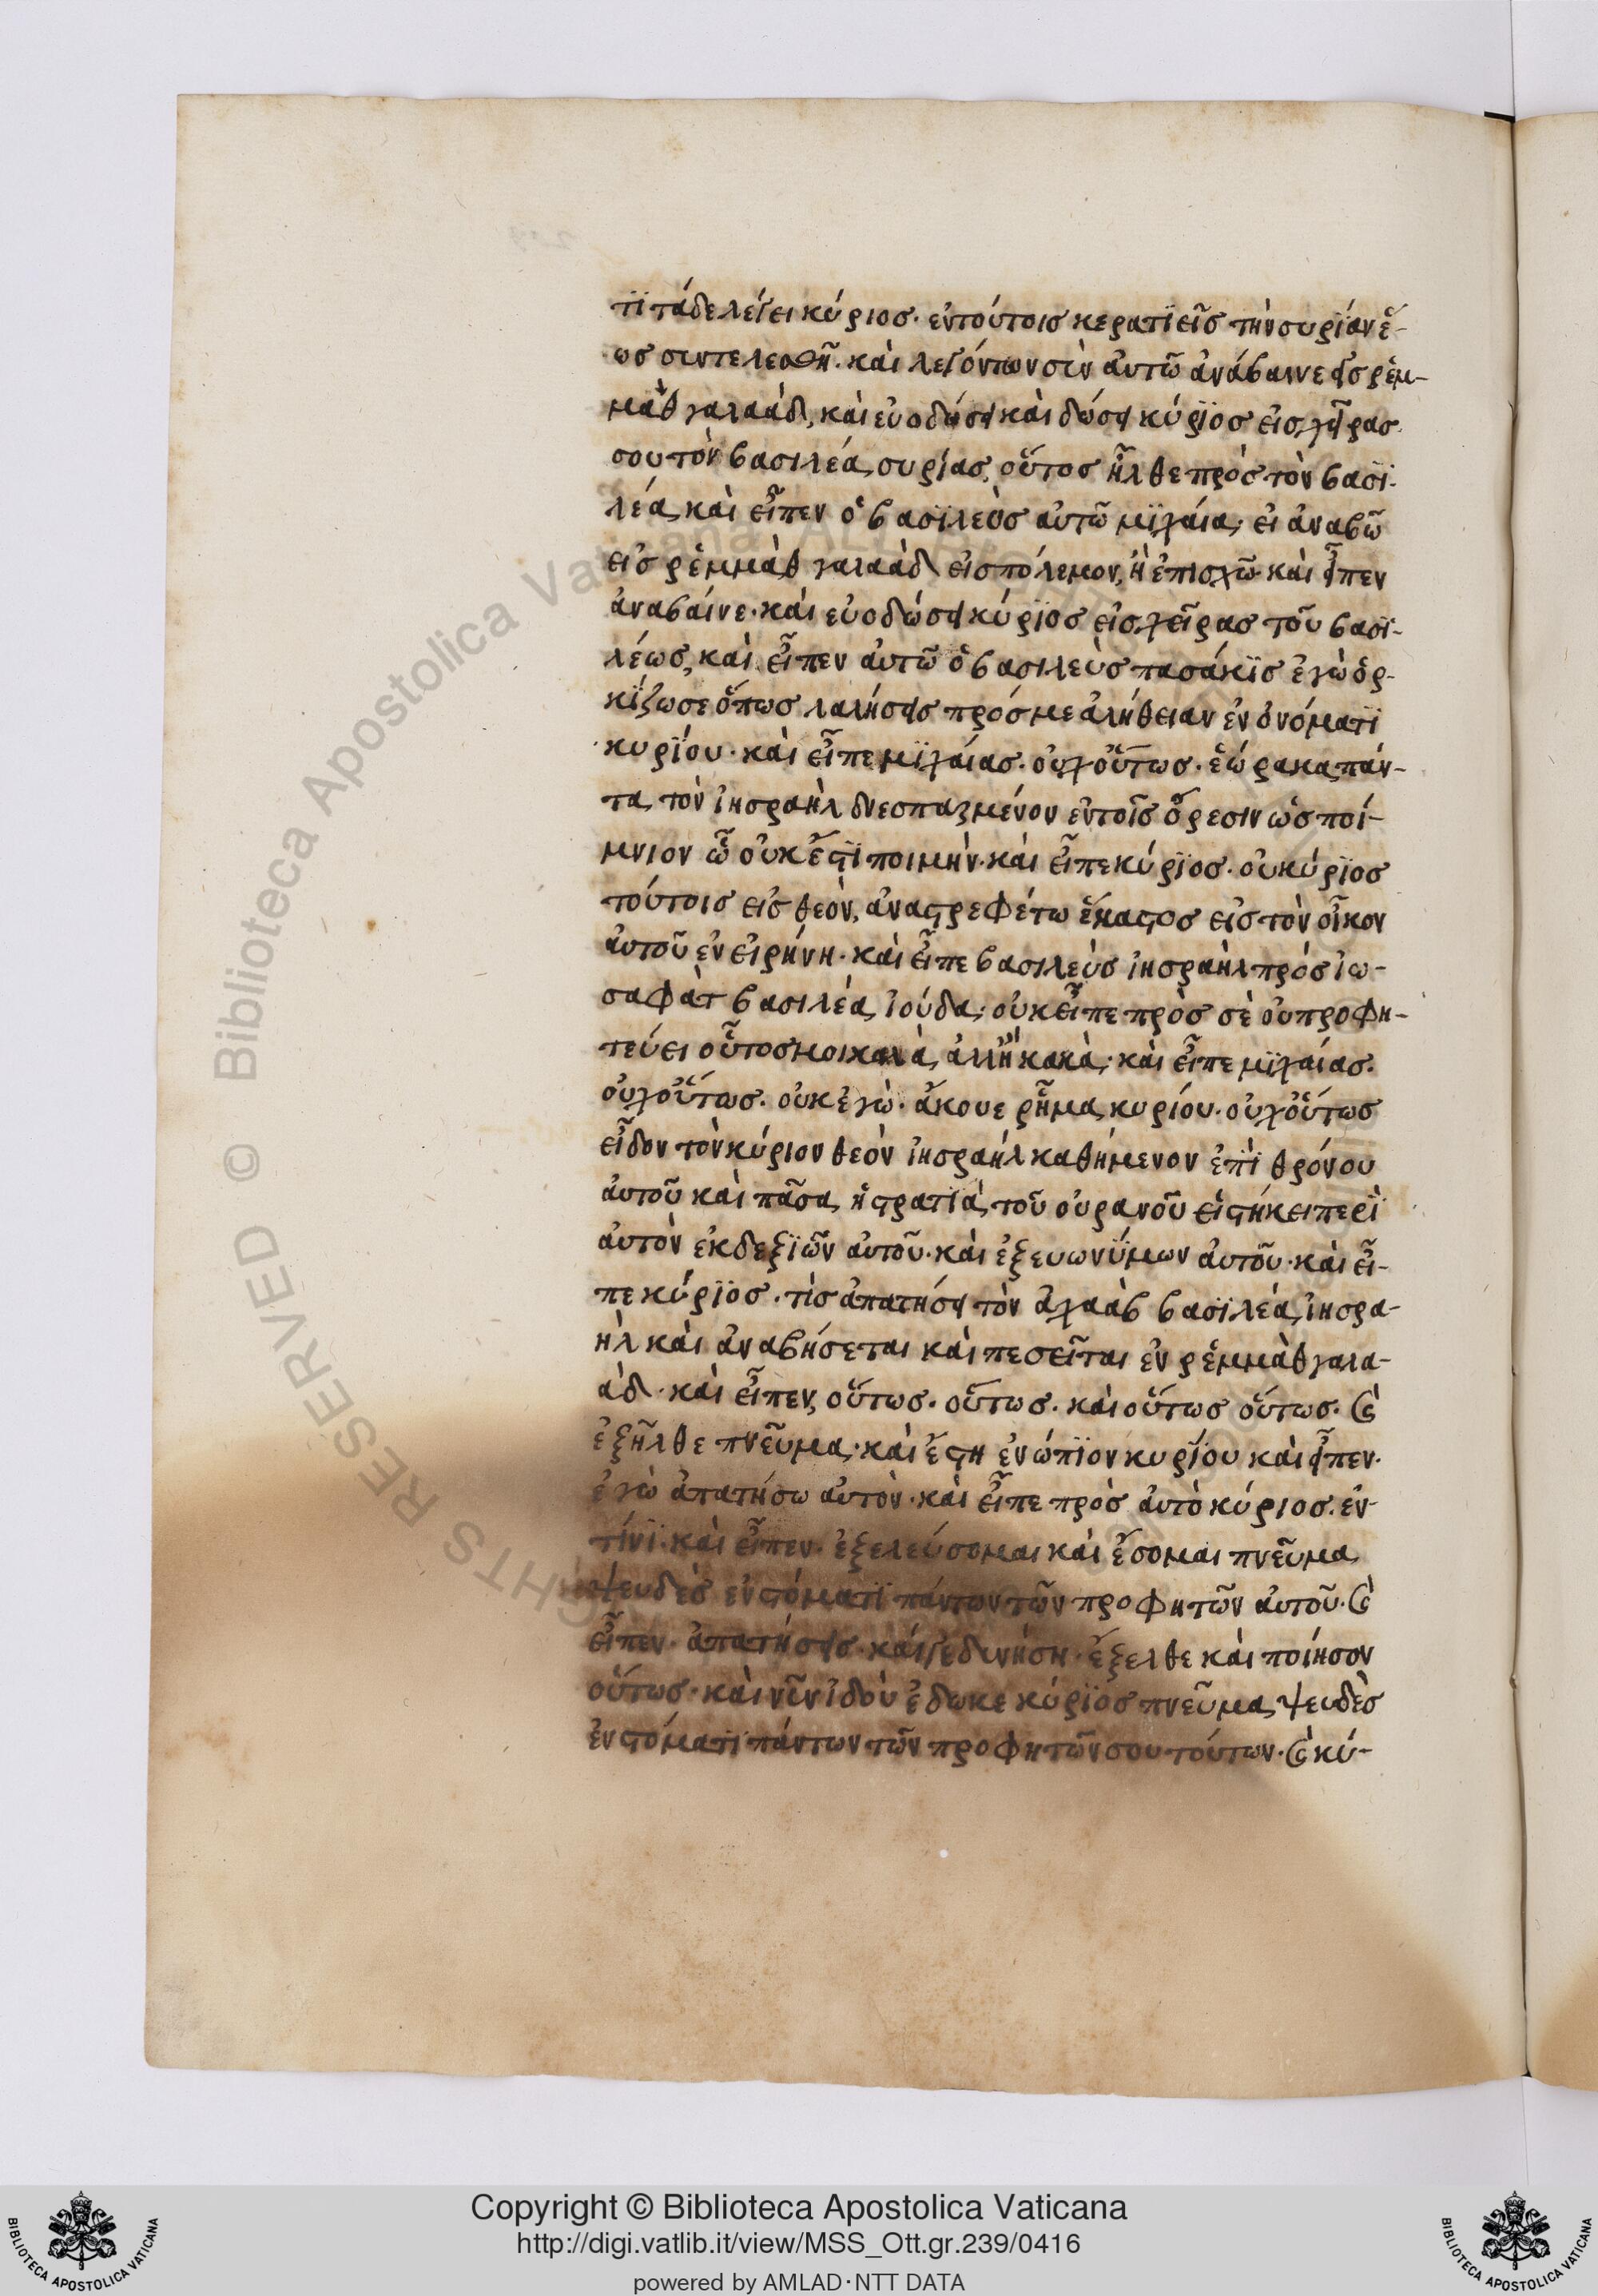 τϊ τάδε λέγει κύριος· ἐν τούτοις κερατιεῖς τὴν συρίαν ἕ-
ως συντελεσθῇ· καὶ λεγόντων σὺν αὐτῶ ἀνάβαινε εἰς ρἐμ-
μὰθ γαλαάδ, καὶ εὐοδώσει καὶ δώσει κύριος εἰς χεῖρας
σου τὸν βασιλέα συρίας, οὗτος ἦλθε πρὸς τὸν βασϊ-
λέα, καὶ εἶπεν ὁ βασϊλεὺς αὐτῶ μϊχαία, εἰ ἀναβῶ
εἰς ρἐμμὰθ γαλαὰδ εἰς πόλεμον, ἢ ἐπισχῶ· καὶ εἶπεν
ἀναβαίνε· καὶ εὐοδώσει κύριος εἰς χεῖρας τοῦ βασϊ-
λέως, καὶ εἶπεν αὐτῶ ὁ βασιλεὺς πασάκϊς ἐγὼ ὁρ-
κίζω σε ὅπως λαλήσεις πρός με ἀλήθειαν ἐν ὀνόματϊ
κυρίου· καὶ εἶπε μϊχαίας· οὐχ οὕτως· ἑώρακα πάν-
τα τὸν ἰησραὴλ διεσπαζμένον ἐν τοῖς ὄρεσιν ὡς ποί-
μνιον ὧ οὐκ ἔστϊ ποιμήν· καὶ εἶπε κύριος· οὐ κύριος
τούτοις εἰς θεόν, ἀναστρεφέτω ἕκαστος εἰς τὸν οἶκον
αὐτοῦ ἐν εἰρήνη· καὶ εἶπε βασιλεὺς ἰησραὴλ πρὸς ἰω-
σαφὰτ βασιλέα ἰούδα, οὐκ εἶπε πρὸς σὲ οὐ προφη-
τεύει οὗτος μοι καλὰ, ἀλλ' ἢ κακὰ· καὶ εἶπε μϊχαίας·
οὐχ οὕτως· οὐκ ἐγὼ· ἄκουε ρῆμα κυρίου· οὐχ οὕτως
εἶδον τὸν κύριον θεὸν ἰησραὴλ καθήμενον ἐπὶ θρόνου
αὐτοῦ καὶ πᾶσα ἡ στρατϊὰ τοῦ οὐρανοῦ εἱστήκει περὶ
αὐτὸν ἐκ δεξϊῶν αὐτοῦ· καὶ ἐξ ευωνύμων αὐτοῦ· καὶ εἶ-
πε κύριος· τίς ἀπατήσει τὸν ἀχαὰβ βασϊλέα ἰησρα-
ὴλ καὶ ἀναβήσεται καὶ πεσεῖται ἐν ρἐμμὰθ γαλα-
ὰδ· καὶ εἶπεν, οὕτως· οὕτως· καὶ οὕτως οὕτως· ϗ
ἐξῆλθε πνεῦμα· καὶ ἔστη ἐνώπϊον κυρίου καὶ εἶπεν·
ἐγὼ ἀπατήσω αὐτὸν· καὶ εἶπε πρὸς αὐτὸ κύριος· ἐν
τίνϊ· καὶ εἶπεν· ἐξελεύσομαι καὶ ἔσομαι πνεῦμα
ψευδὲς ἐν στόματϊ πάντων τῶν προφητῶν αὐτοῦ· ϗ
εἶπεν· ἀπατήσεις· καί γε δυνήση· ἔξελθε καὶ ποίησον
οὕτως· καὶ νῦν ἰδοὺ ἔδωκε κύριος πνεῦμα ψευδὲς
ἐν στόματϊ πάντων τῶν προφητῶν σου τούτων· ϗ κύ-
Biblioteca Apostolica Vaticana
© Biblioteca Apostolica Vaticana
RIGHTS RESERVED
Copyright © Biblioteca Apostolica Vaticana
http://digi.vatlib.it/view/MSS_Ott.gr.239/0416
powered by AMLAD·NTT DATA
BIBLIOTECA APOSTOLICA VATICANA
BIBLIOTECA APOSTOLICA VATICANA